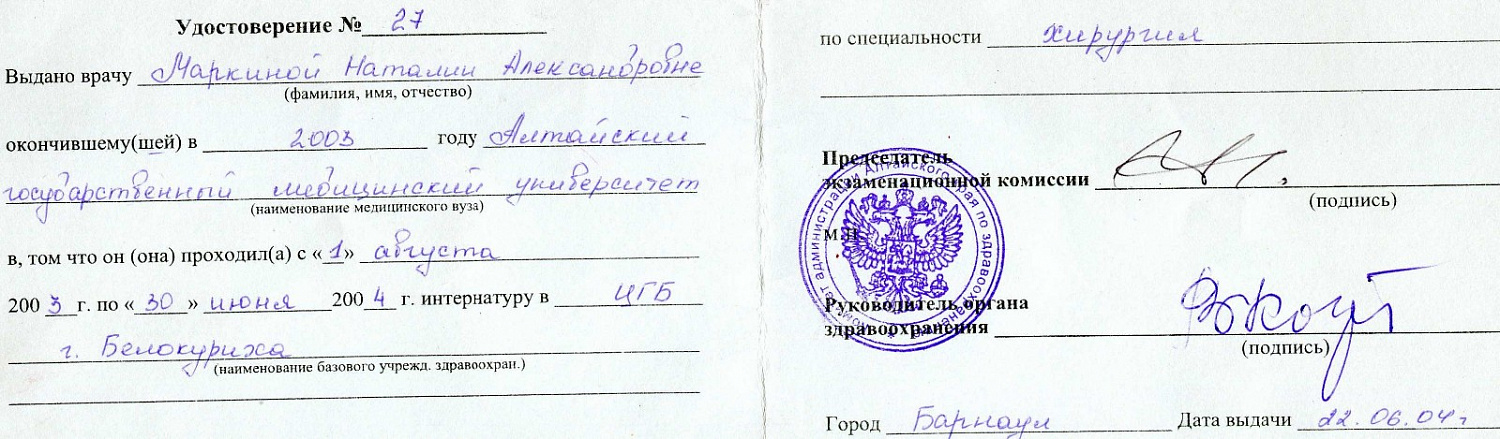 Удостоверение № 27
Выдано врачу Маркиной Наталии Александровне
(фамилия, имя, отчество)
окончившему(шей) в 2003 году Алтайский
государственный медицинский университет
(наименование медицинского вуза)
в, том что он (она) проходил(а) с «1» августа
2003 г. по «30» июня 2004 г. интернатуру в ЦГБ
г. Белокуриха
(наименование базового учрежд. здравоохран.)
по специальности хирургия
Председатель
экзаменационной комиссии
(подпись)
М.П.
администрации Алтайского края по здравоохранению
Руководитель органа
здравоохранения
(подпись)
Город Барнаул Дата выдачи 22.06.04г